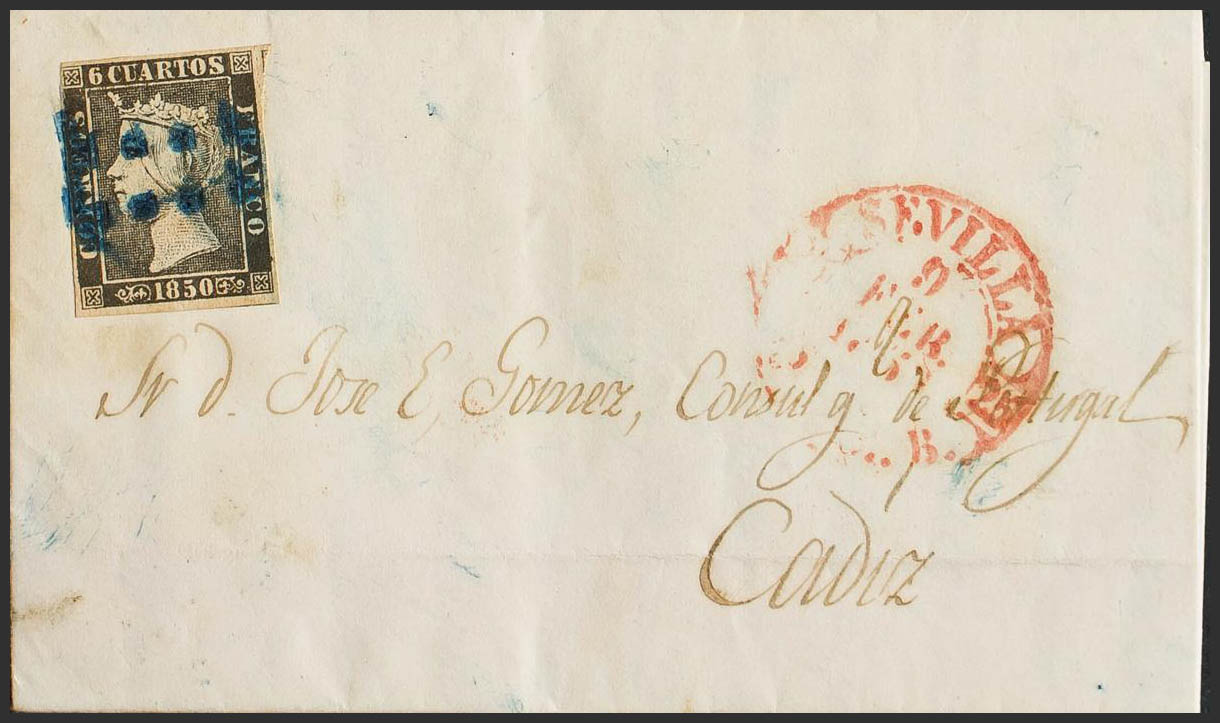 6 CUARTOS
CORREOS
FRANCO
1850
SEVILLA
B.
Sr d. Jose E, Gomez, Consul g.l de Portugal
Cadiz